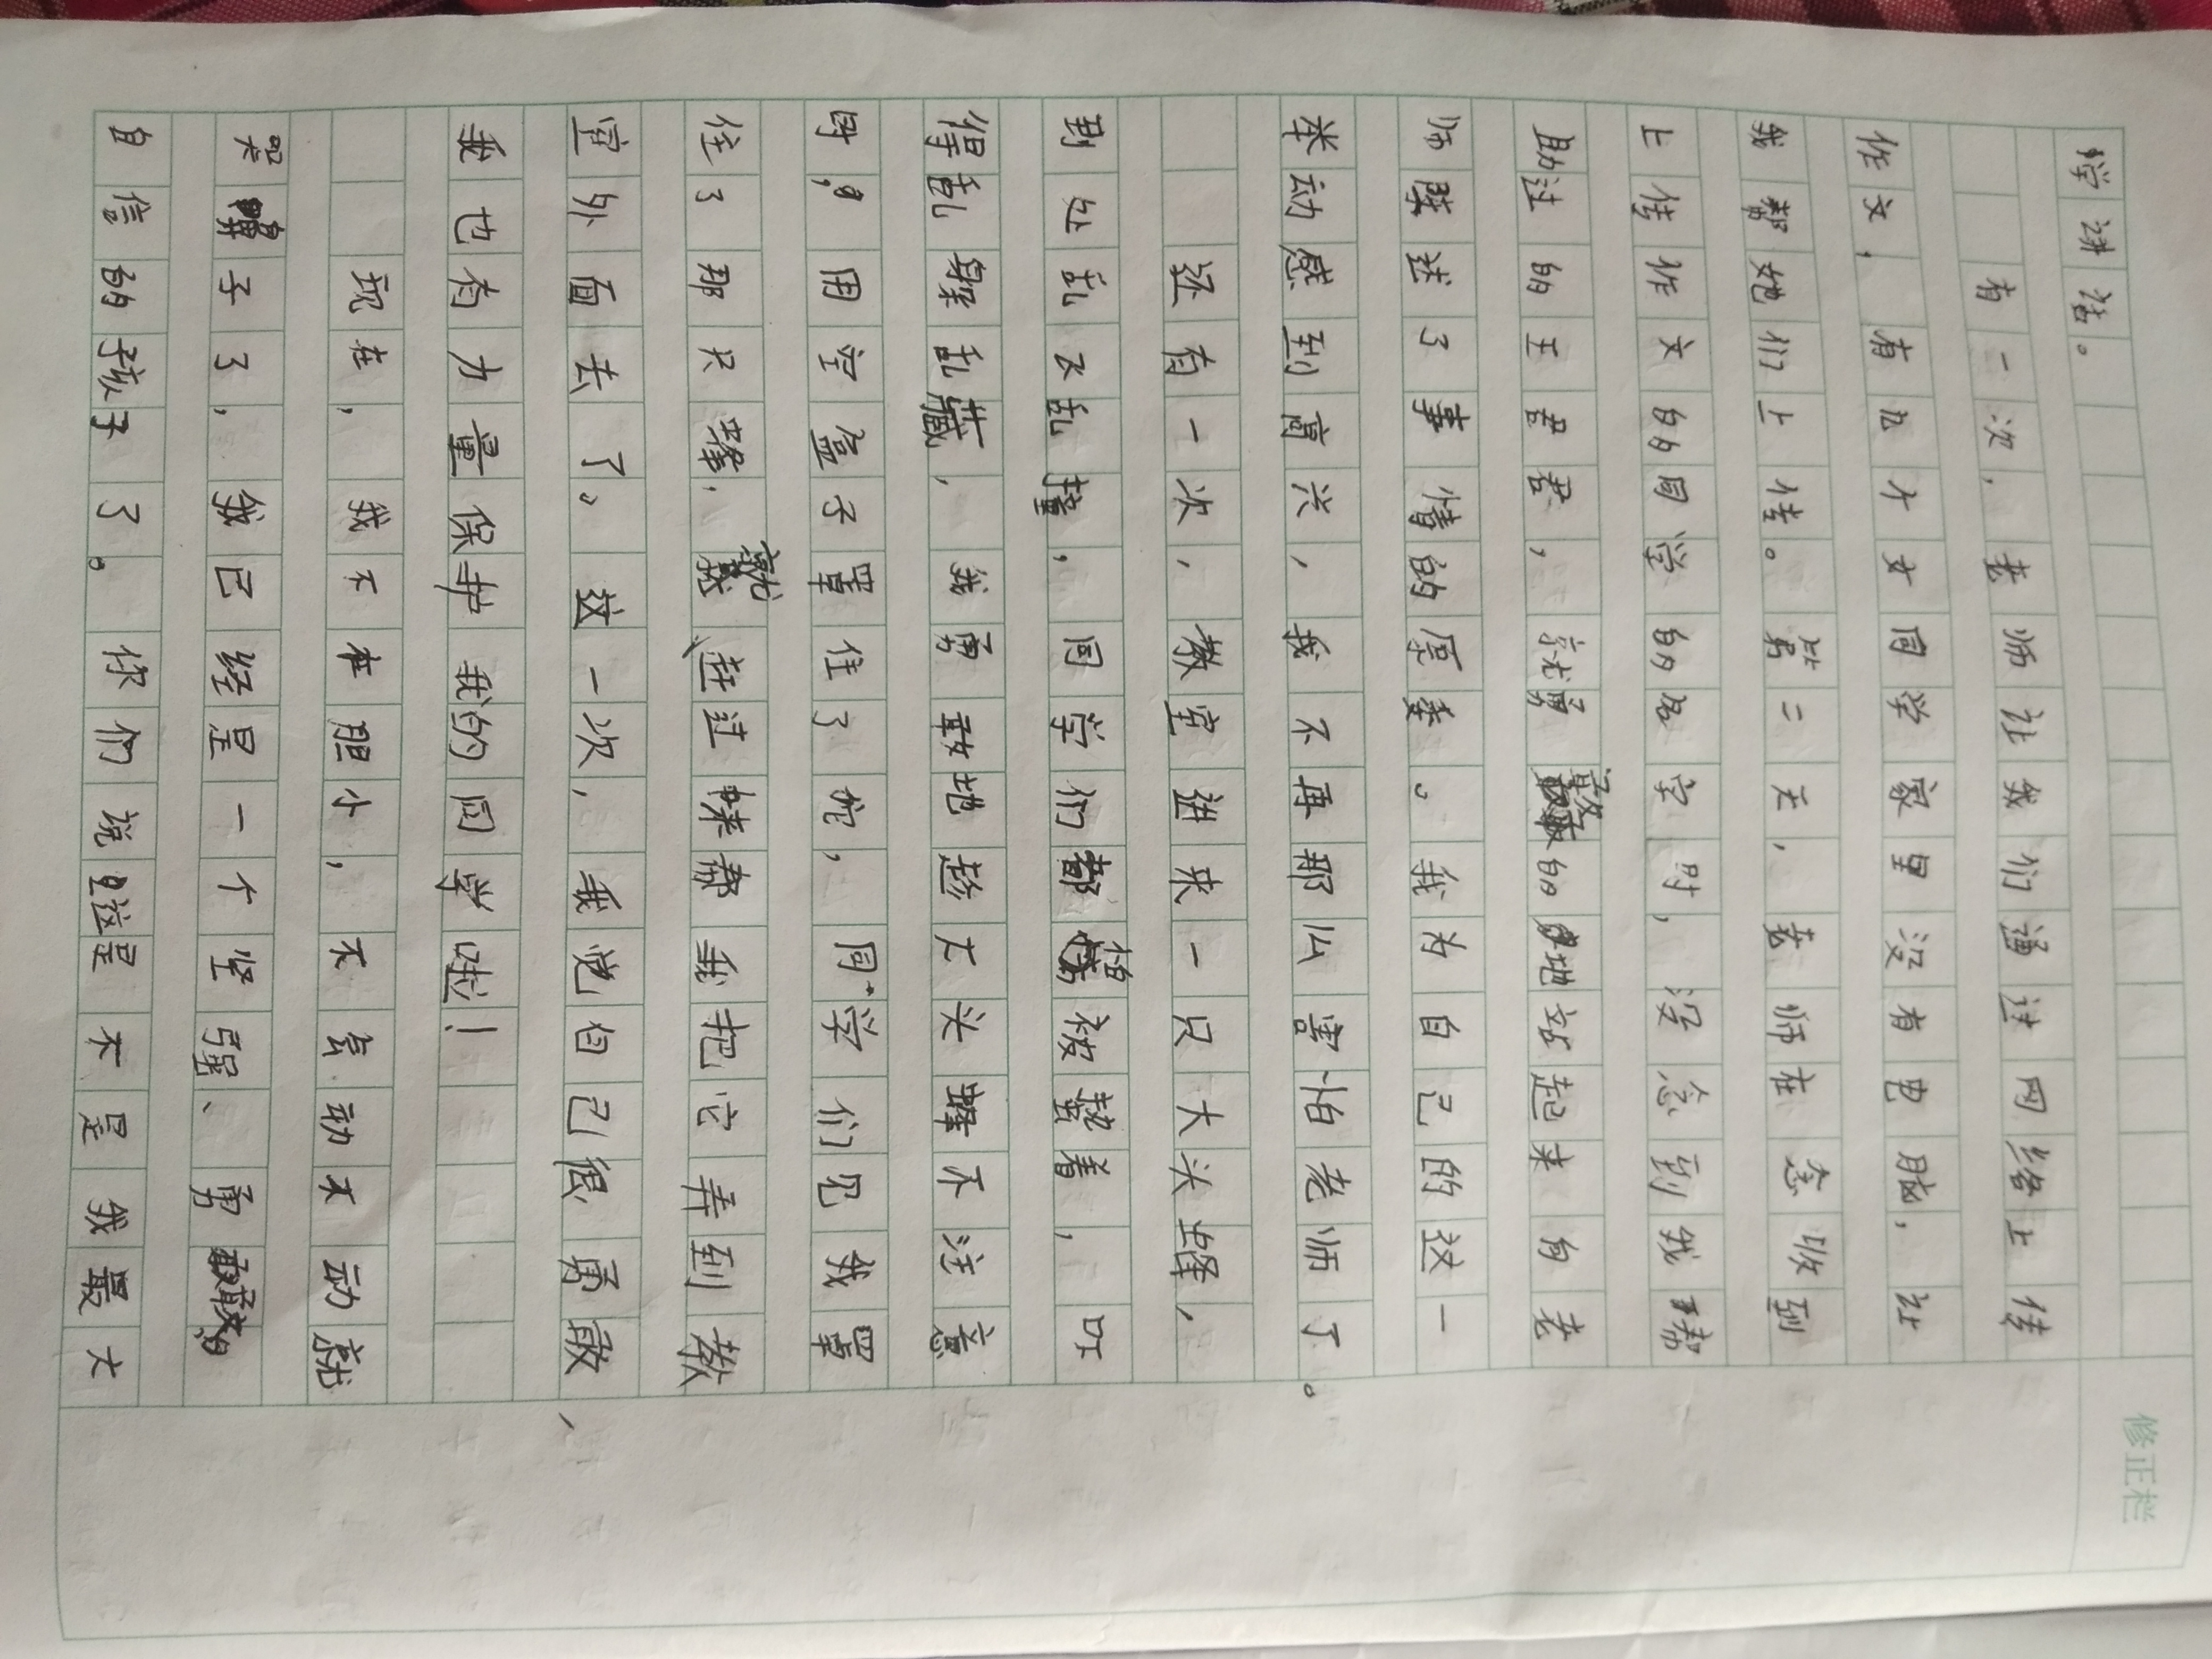 学讲话。
有一次，老师让我们通过网络上传
作文，有几个女同学家里没有电脑，让
我帮她们上传。第二天，老师在念收到
上传作文的同学的名字时，没念到我帮
助过的王君君，就勇敢的地站起来向老
师陈述了事情的原委。我为自己的这一
举动感到高兴，我不再那么害怕老师了。
还有一次，教室进来一只大头蜂，
到处乱飞乱撞，同学们都怕被蛰着，吓
得乱躲乱藏，我勇敢地趁大头蜂不注意
时，用空盒子罩住了它，同学们见我罩
住了那只蜂，就赶过来帮我把它弄到教
室外面去了。这一次，我觉自己很勇敢，
我也有力量保护我的同学啦！
现在，我不在胆小，不会动不动就
哭鼻子了，我已经是一个坚强、勇敢的
自信的孩子了。你们说这是不是我最大
修正栏